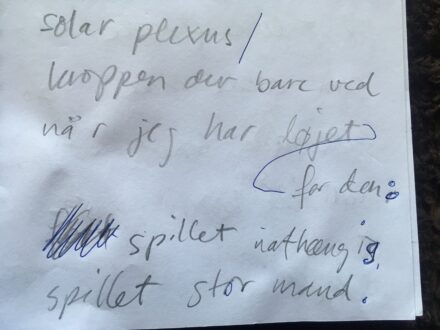 solar plexus/
kroppen der bare ved
når jeg har løjet
for den:
spillet uafhængig,
spillet stor mand.